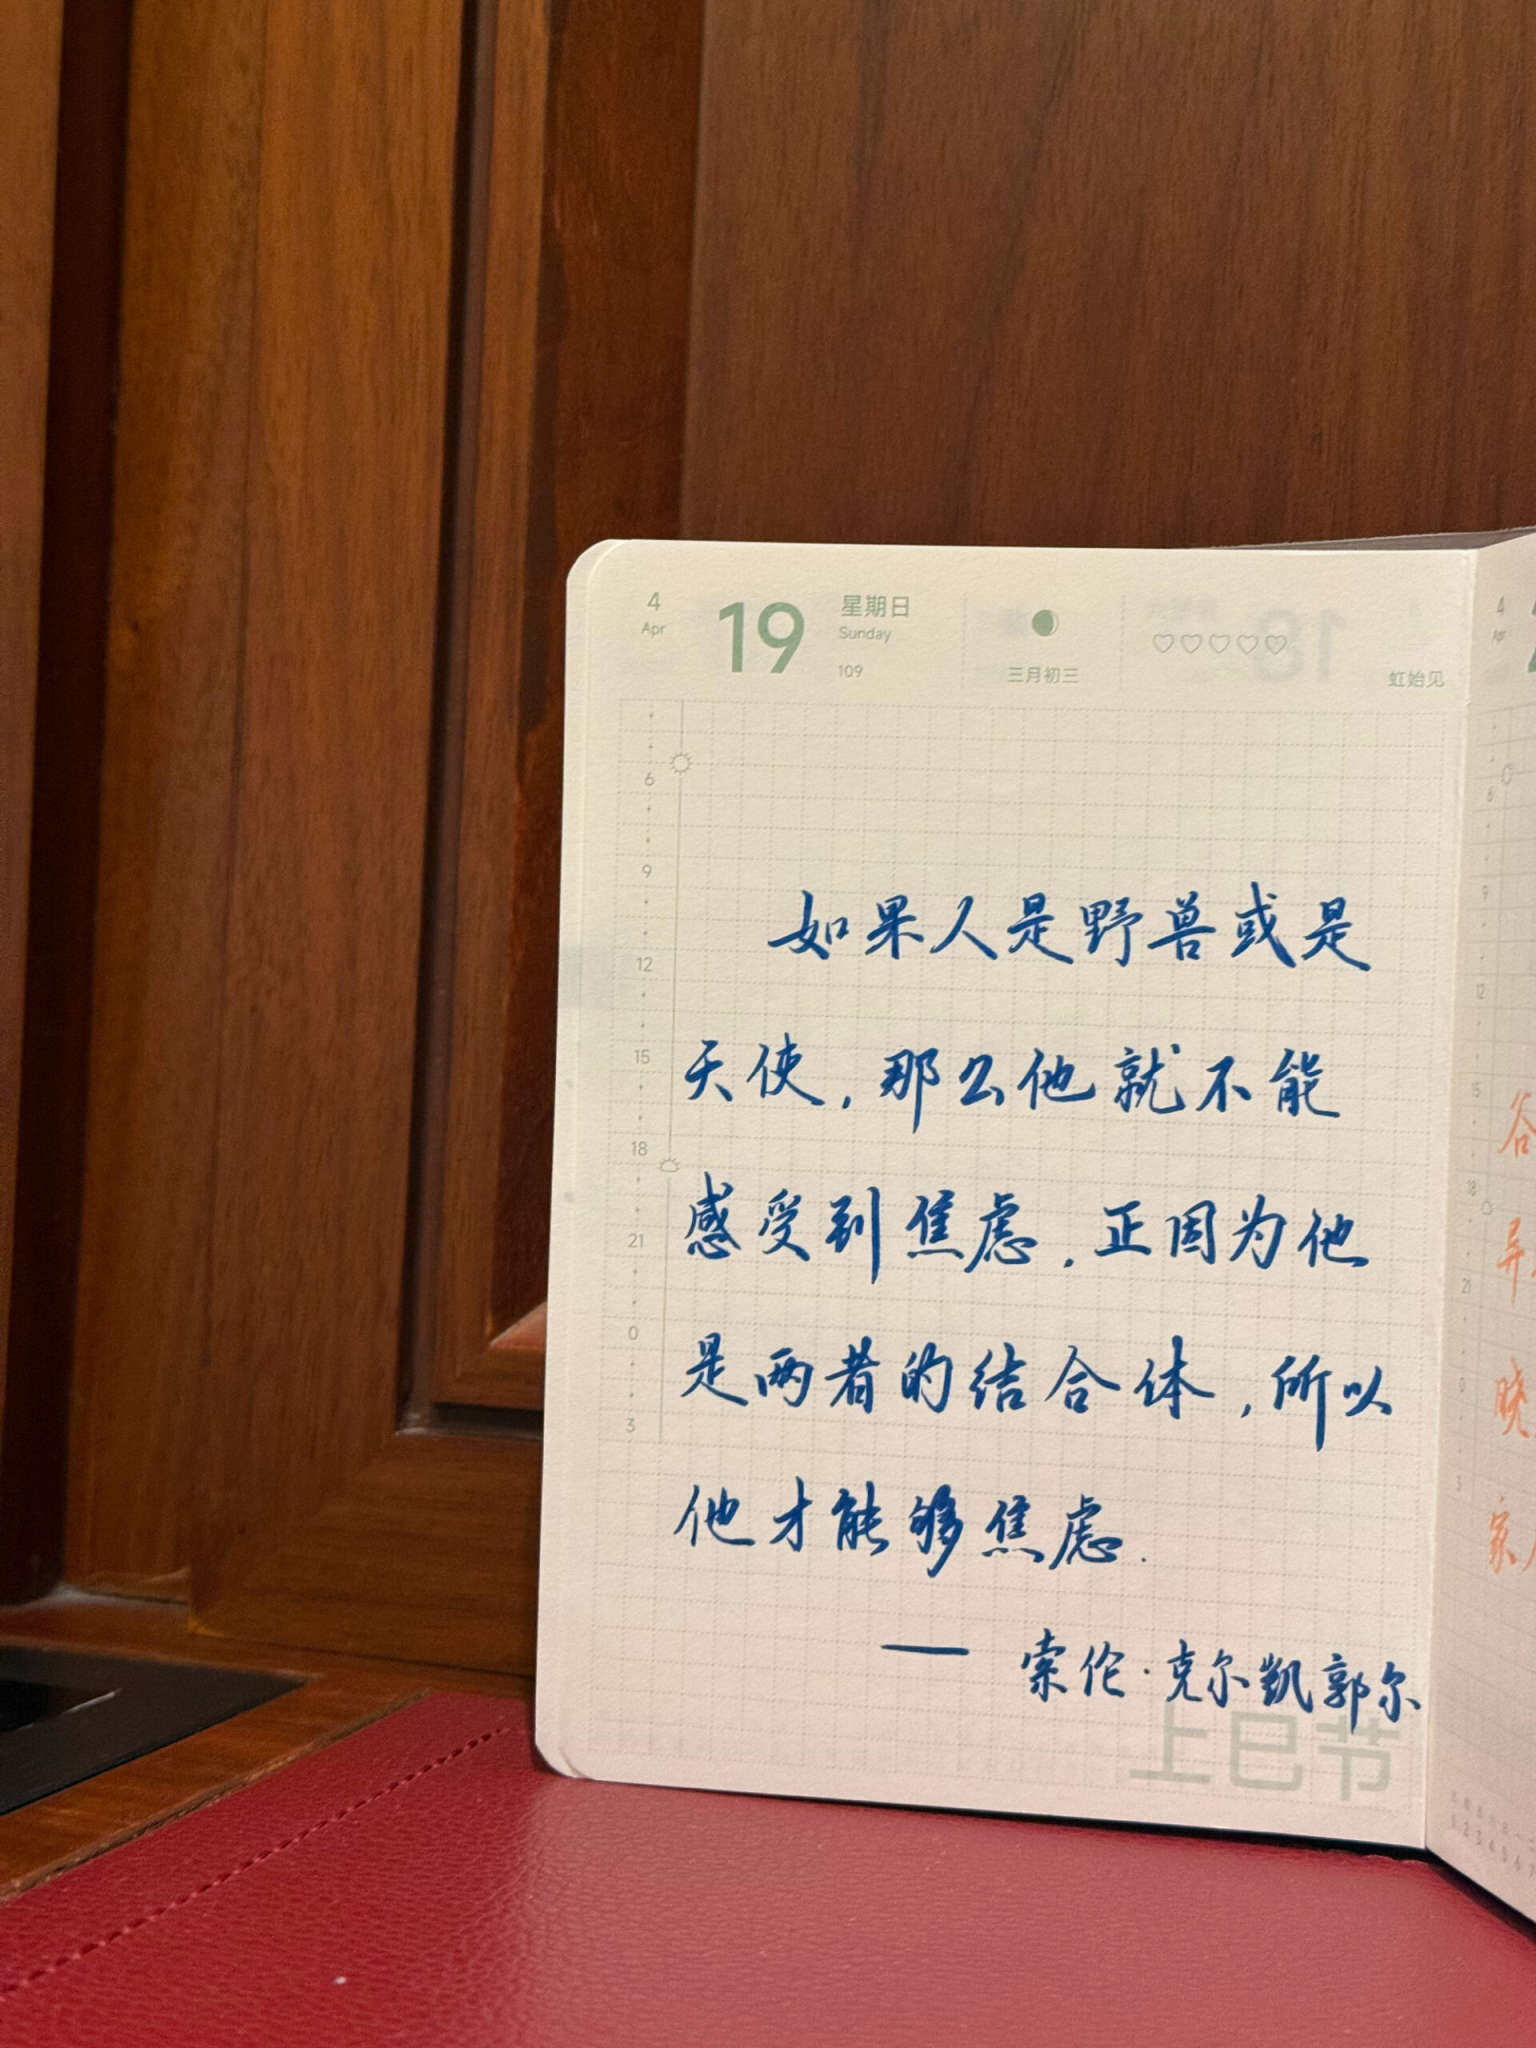 4
Apr
19
星期日
Sunday
109
三月初三
虹始见
6
9
12
15
18
21
0
3
如果人是野兽或是
天使，那么他就不能
感受到焦虑，正因为他
是两者的结合体，所以
他才能够焦虑.
— 索伦·克尔凯郭尔
上巳节
4
6
9
12
15
18
21
0
3
谷
异
晓
家